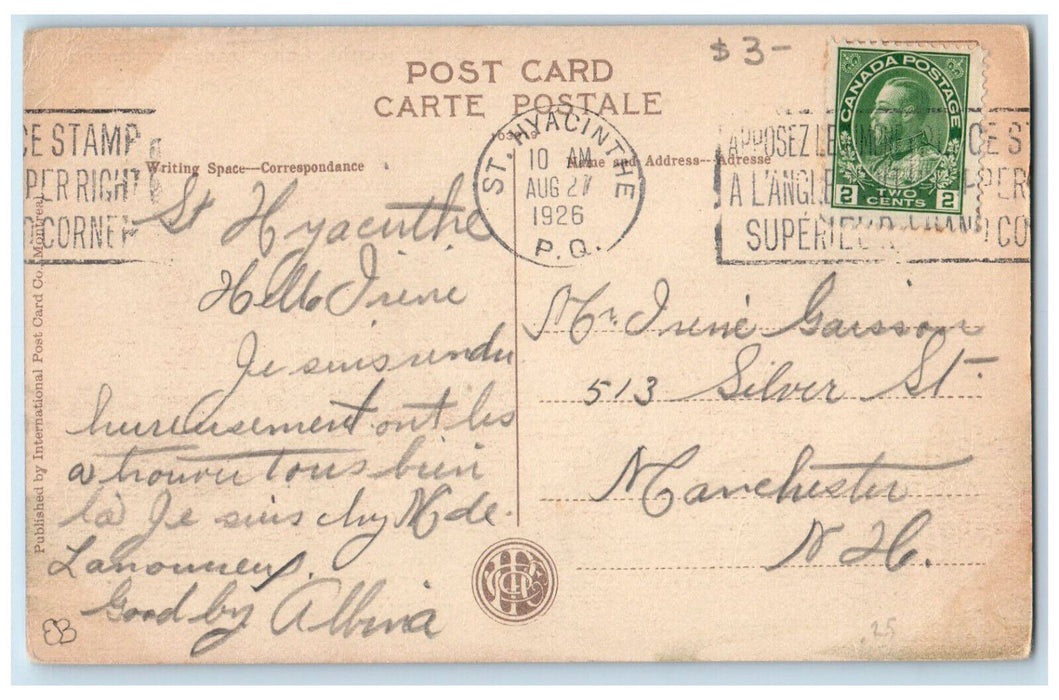 $3-
POST CARD
CARTE POSTALE
CANADA POSTAGE
2 TWO CENTS 2
CE STAMP
PER RIGHT
CORNER
ST. HYACINTHE
10 AM
AUG 27
1926
P.Q.
APPOSEZ LE
A L'ANGLE
SUPÉRIEUR
CE ST
PER
CO
Writing Space--Correspondance
Name and Address--Adresse
St Hyacinthe
Hello Irene
Je suis rendu
hureusement ont les
a trouver tous bien
là Je suis chy M de
Good by Albina
Mr Irené
513 Silver St.
Manchester
N H.
Published by International Post Card Co., Montreal
EB
.25